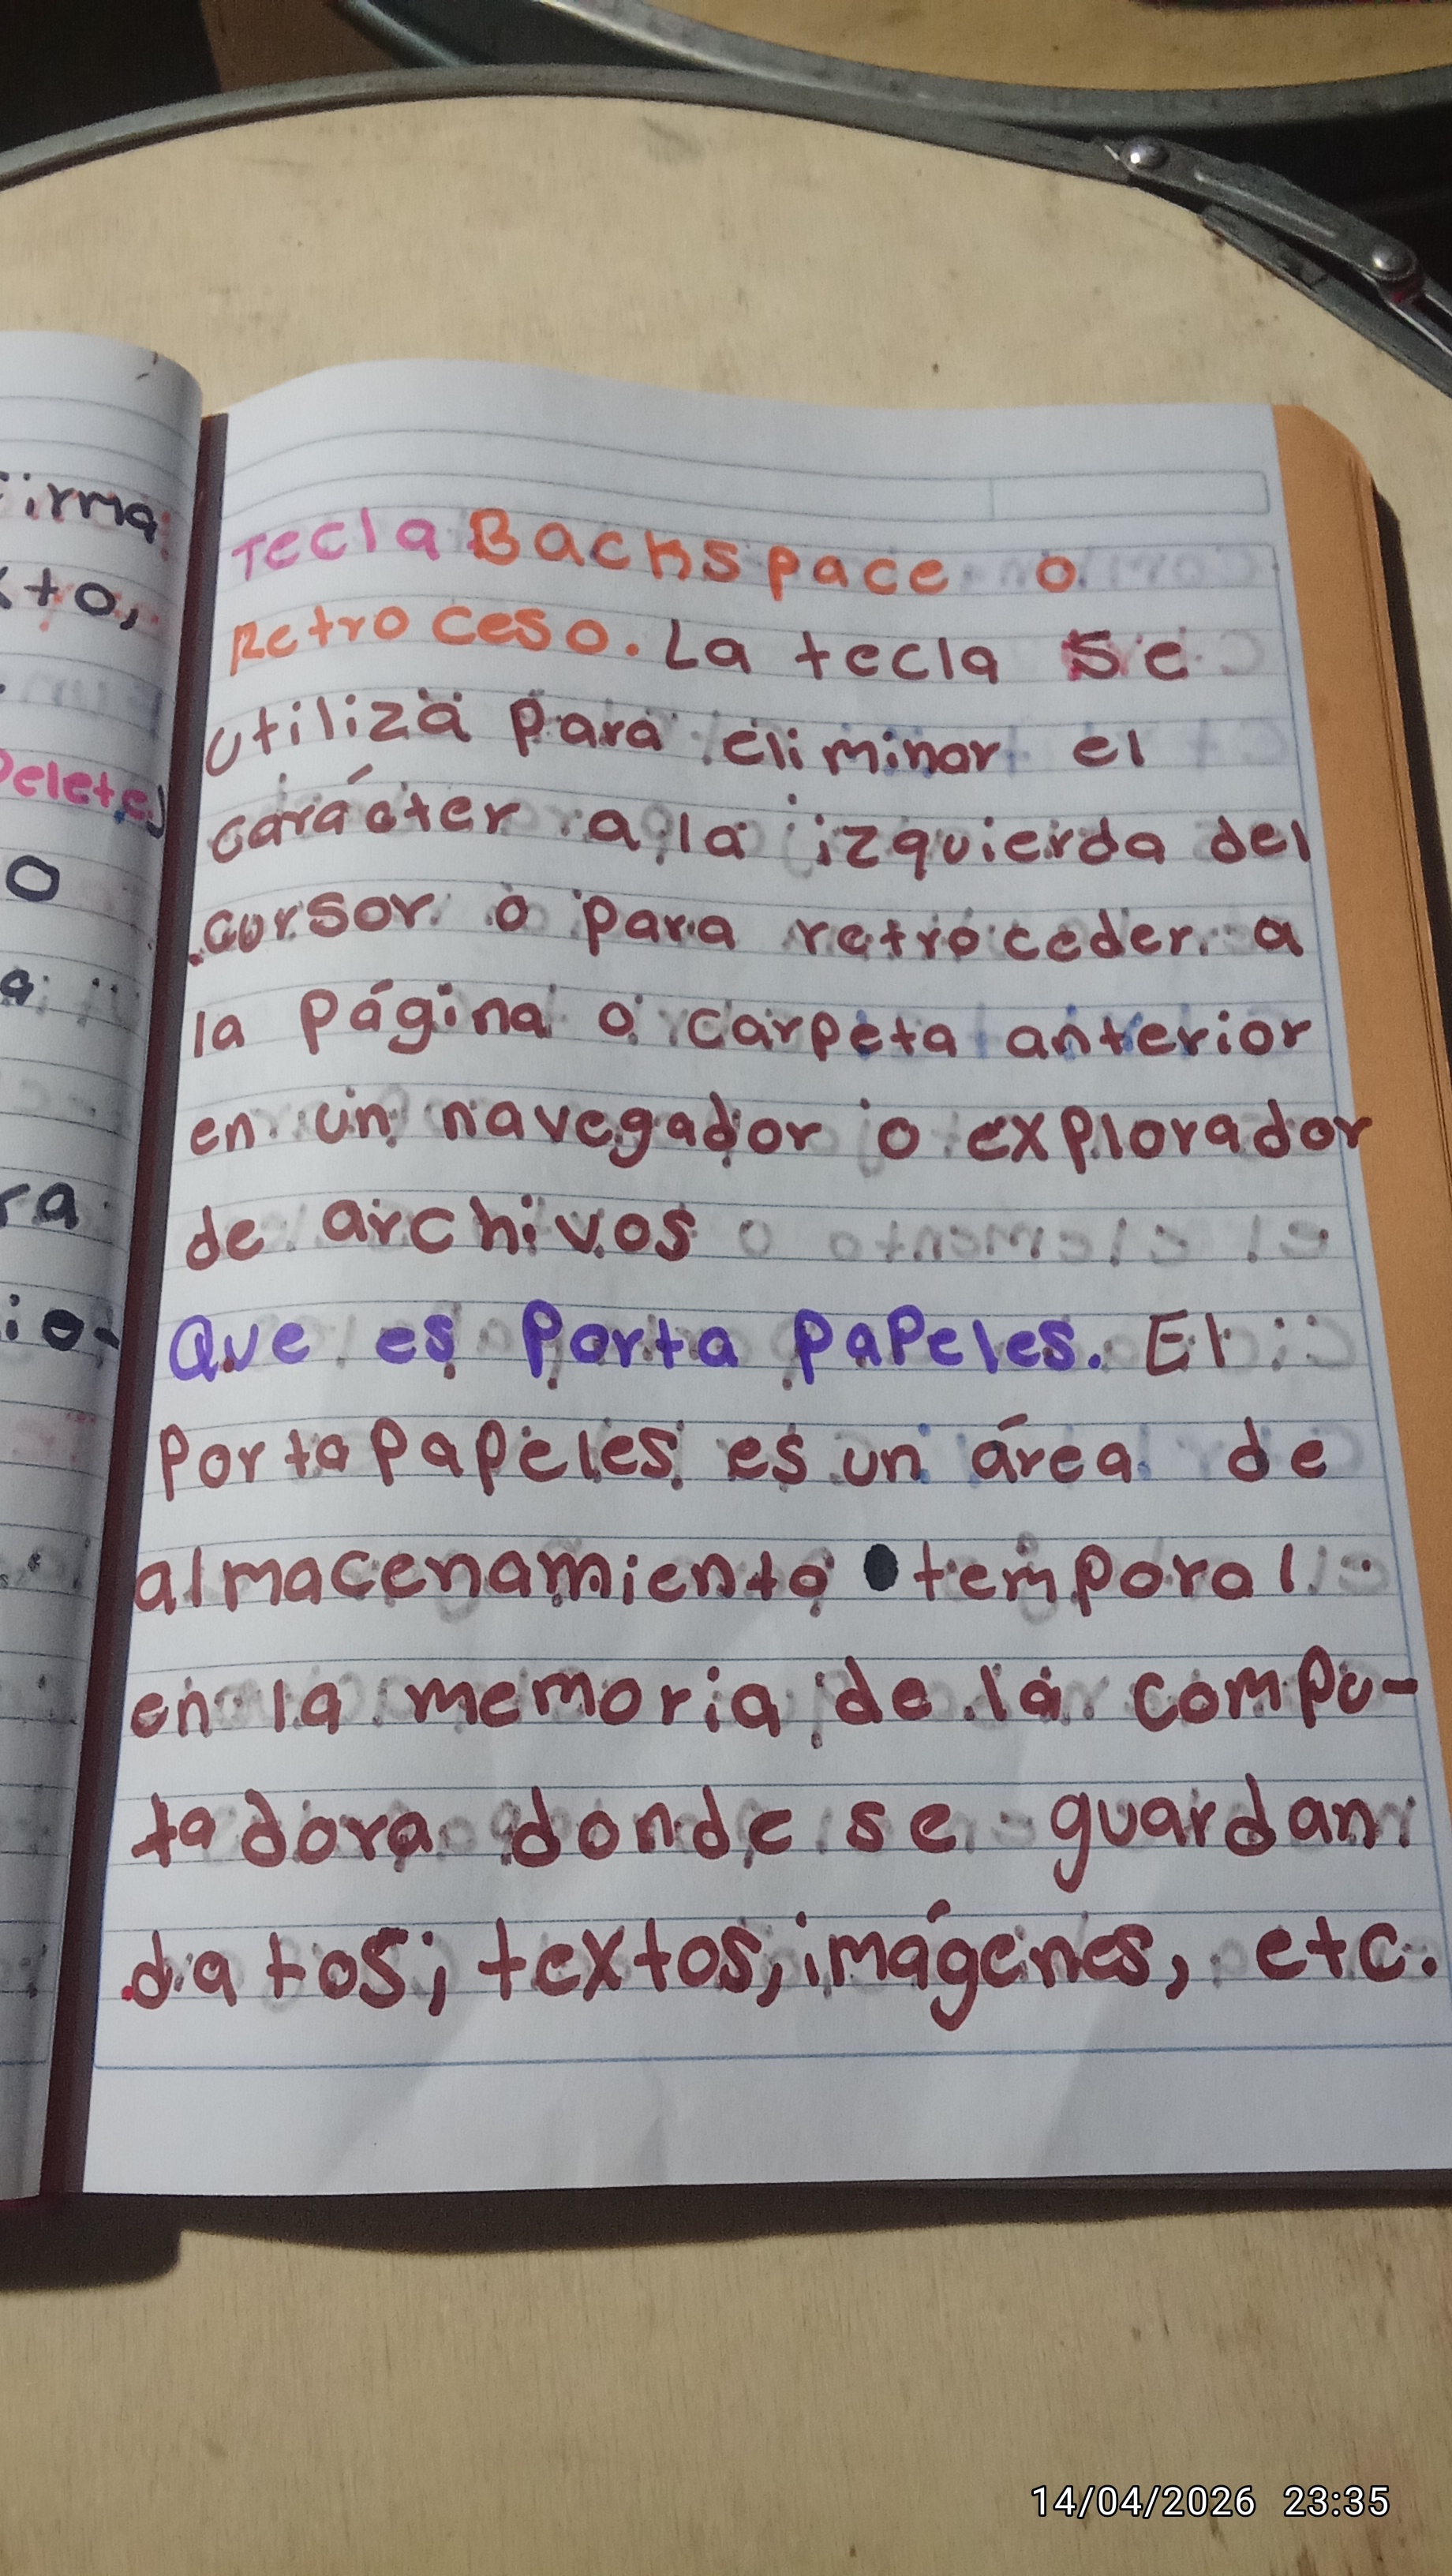 irma
xto,
Delete)
o
a
ra
io-
Tecla Backspace o
Retroceso. La tecla se
utiliza para eliminar el
carácter a la izquierda del
cursor o para retroceder a
la página o carpeta anterior
en un navegador o explorador
de archivos
Que es Porta Papeles. El
PortaPapeles es un área de
almacenamiento temporal
en la memoria de la compu-
tadora donde se guardan
datos; textos, imágenes, etc.
14/04/2026 23:35